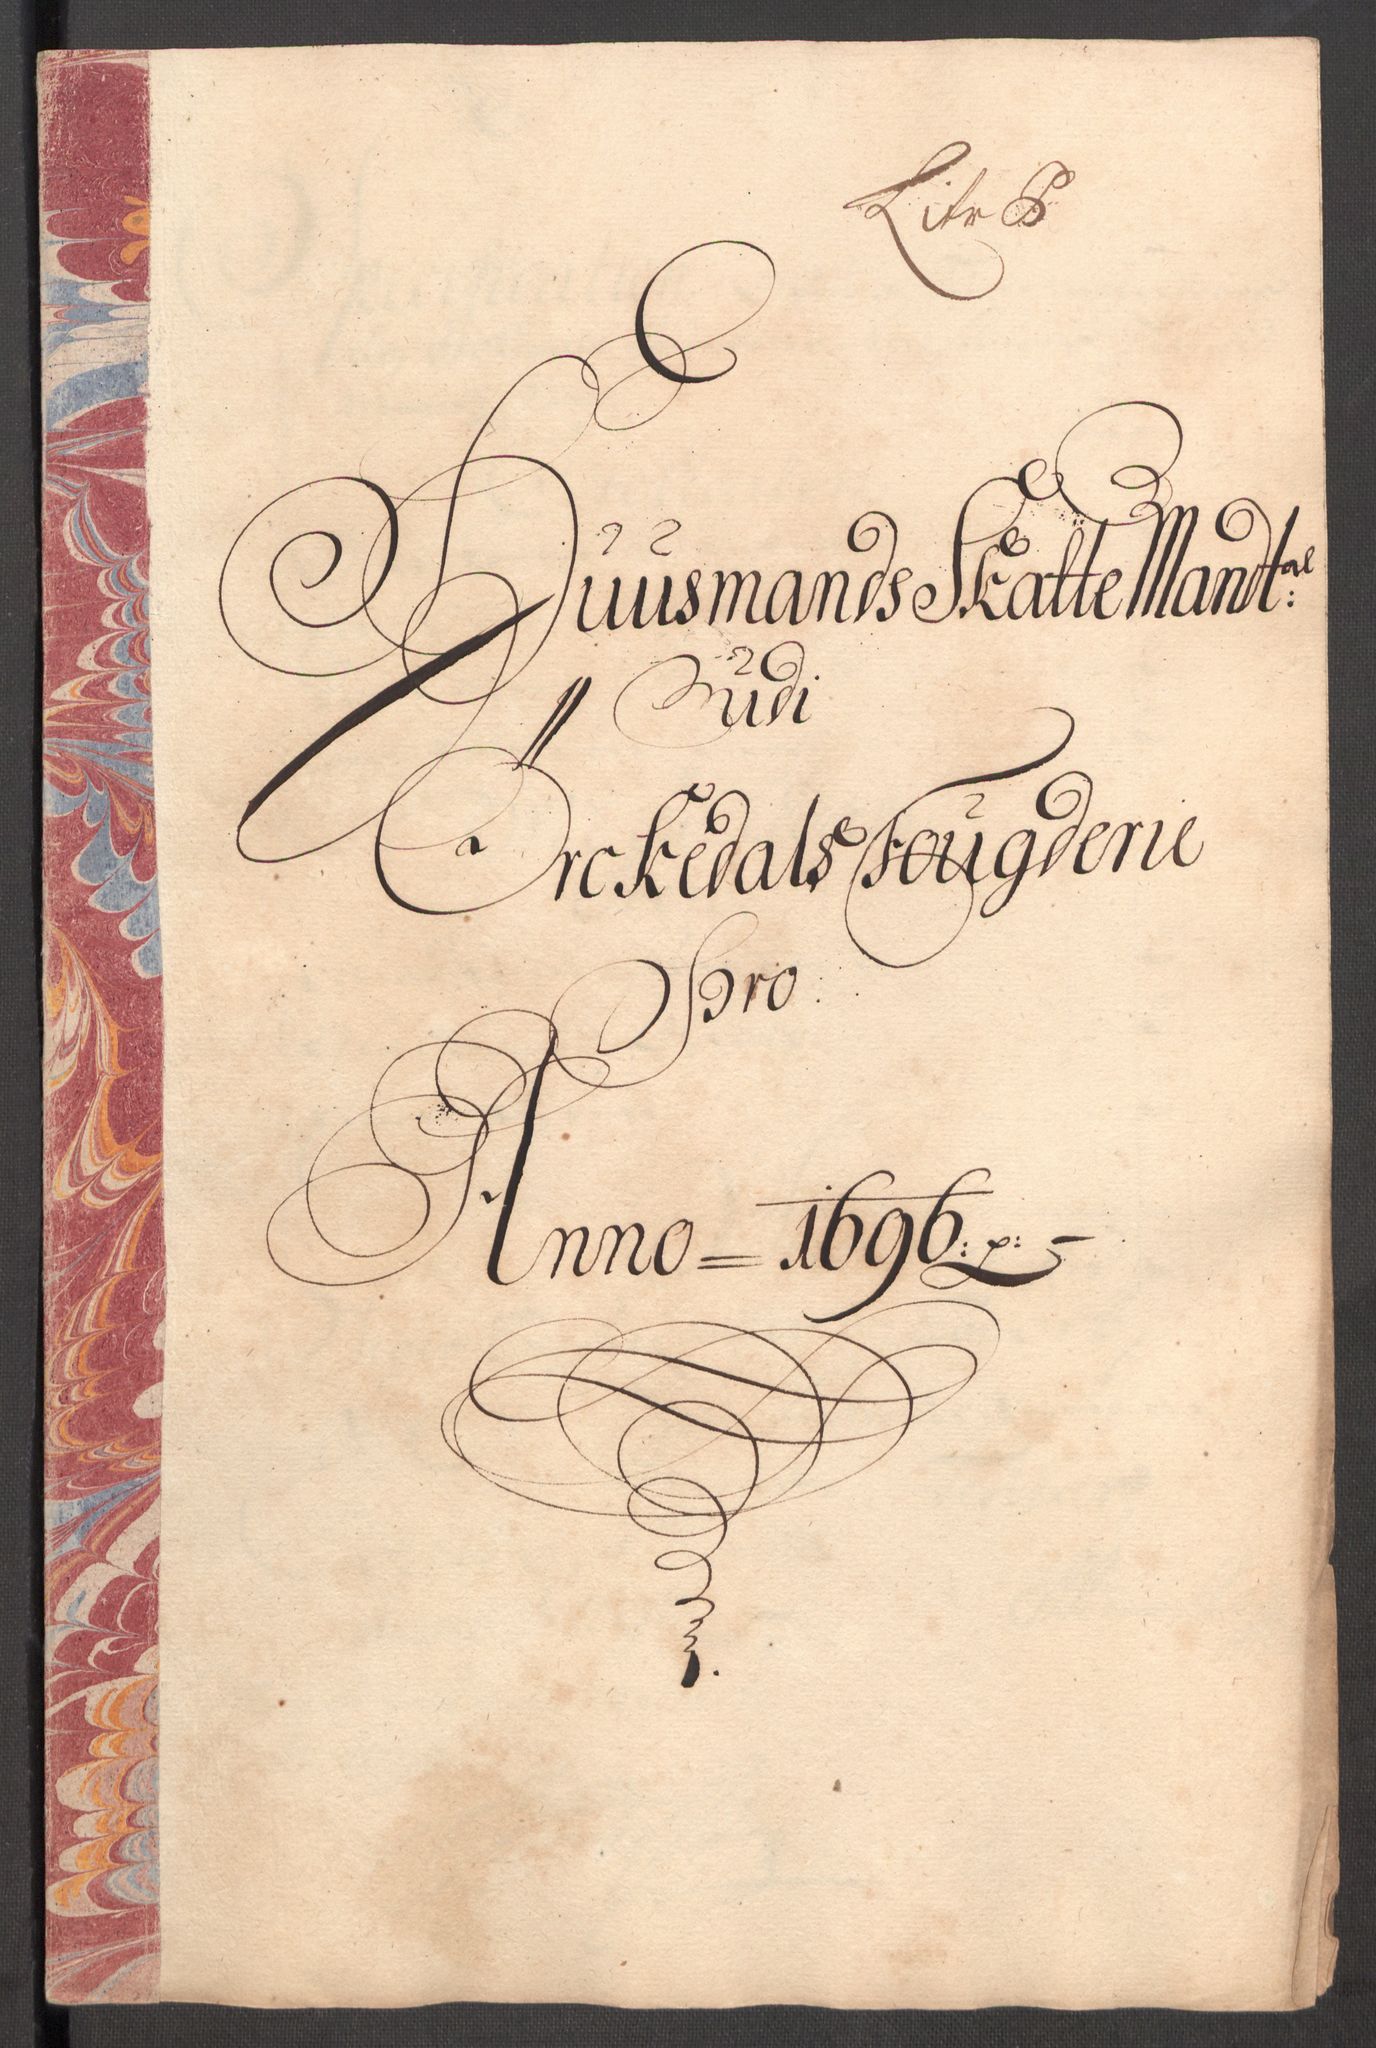 Litr B
Huusmands Skatte Mandtal:
Udi
Orckedals Fougderie
Pro:
Anno = 1696: p: -